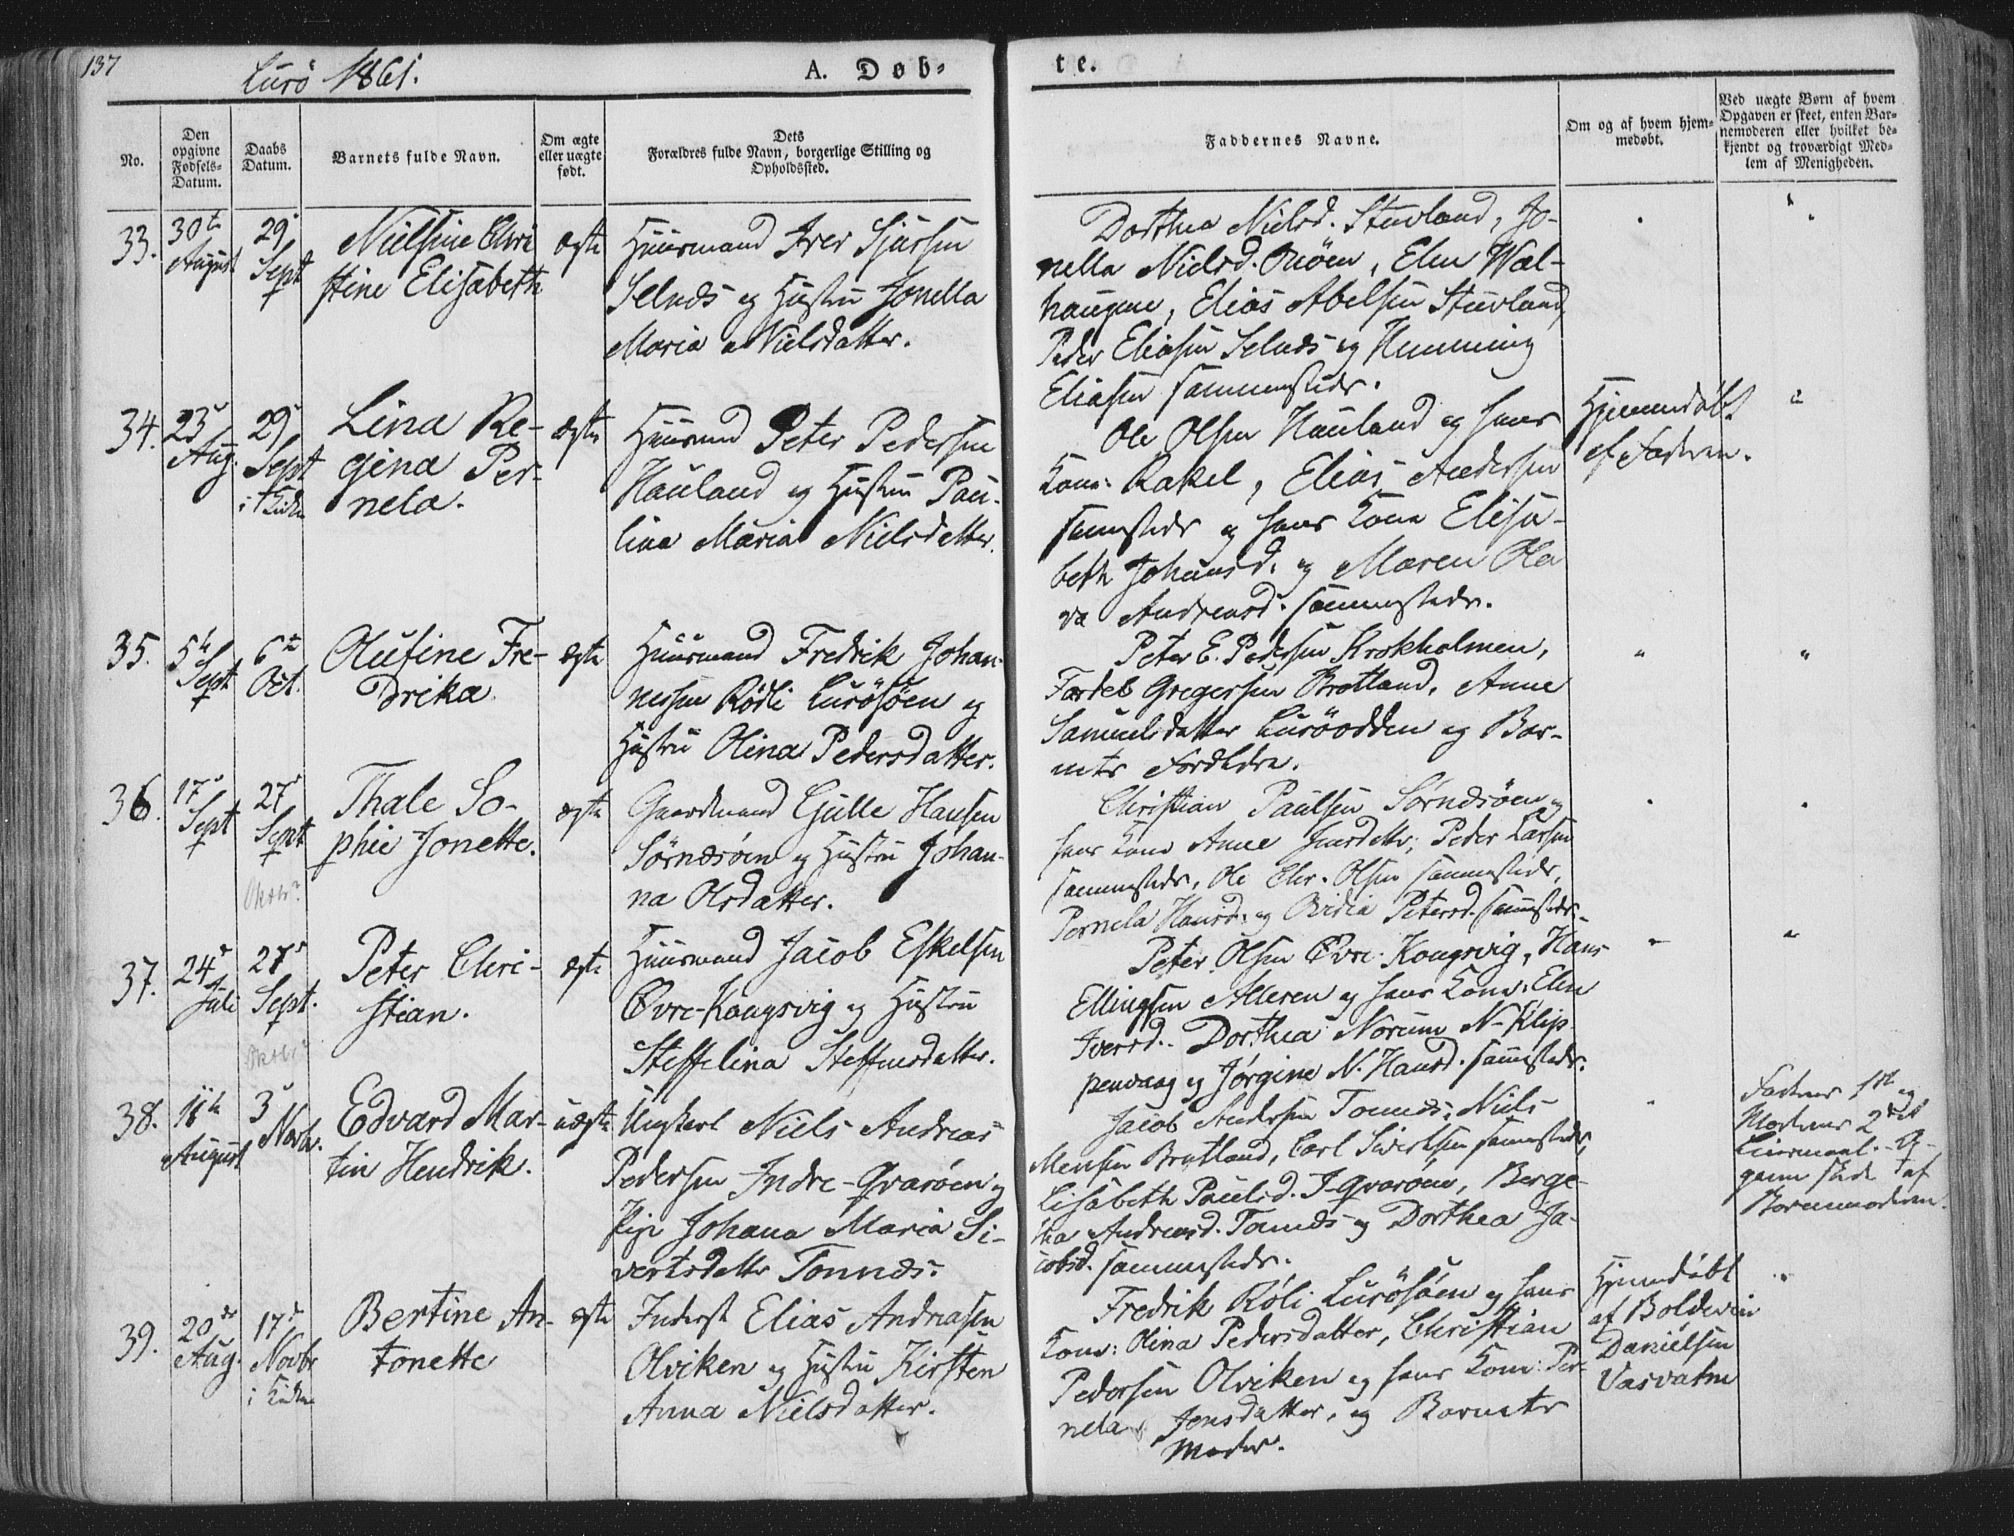 137
Lurö 1861.
A. Døb-
te.
No.
Den opgivne Fødsels-Datum.
Daabs Datum.
Barnets fulde Navn.
Om ægte eller uægte født.
Dets Forældres fulde Navn, borgerlige Stilling og Opholdssted.
Faddernes Navne.
Om og af hvem hjemmedøbt.
Ved uægte Børn af hvem Opgaven er skeet, enten Barnemoderen eller hvilket bekjendt og troværdigt Medlem af Menigheden.
33.
30te August
29 Sept
Nielsine Chri
stine Elisabeth
ægte
Huusmand Iver Sjursen
Selnæs og Hustru Jonella
Maria Nielsdatter.
Dorthea Nielsd. Stuvland, Jo-
nella Nielsd. Onöen, Elen Wal-
haugene, Elias Abelsen Stuvland,
Peder Eliasen Selnæs og Hemming
Eliasen sammesteds.
34.
23 Aug.
29 Sept
i Kirken
Lina Re-
gina Per-
nela.
ægte
Huusmand Peter Pedersen
Hauland og Hustru Pau-
lina Maria Nielsdatter.
Ole Olsen Hauland og hans
Kone: Rakel, Elias Andersen
sammesteds og hans Kone Elisa-
beth Johansd. og Maren Ola
va Andreasd. sammesteds.
Hjemmedøbt
af Faderen.
35.
5te Sept
6te Oct.
Olufine Fre-
drika
ægte
Huusmand Fredrik Johan-
nessen Rödli Lurösöen og
Hustru Olina Pedersdatter.
Peter E. Pedersen Krokholmen,
Tardel Gregersen Brotland, Anne
Samuelsdatter Luröodden og Bar-
nets Forældre.
36.
17 Sept
27 Sept
Oktbr?
Thale So-
phie Jonette.
ægte
Gaardmand Gjulle Hansen
Sörnæsöen og Hustru Johan-
na Olsdatter.
Christian Paulsen Sørnæsöen og
hans Kone Anne; Peder Larsen
sammesteds, Ole Chr. Olsen sammesteds,
Pernela Hansd. og Ovidia Petersd. sammesteds.
37.
24 Juli
27 Sept.
Oktbr?
Peter Chri-
stian.
ægte
Huusmand Jacob Eskelsen
Øvre-Kongsvig og Hustru
Steffelina Steffensdatter.
Peter Olsen Øvre Kongsvig, Hans
Ellingsen Alleren og hans Kone: Elen
Iversd. Dorthea Norum N-Klip
penvaag og Jørgine N. Hansd. sammesteds.
38.
11te August
3 Novbr.
Edvard Mar-
tin Hendrik.
uægte
Ungkarl Niels Andreas
Pedersen Indre-Qvaröen og
Pige Johana Maria Si-
vertsdatter Tonnæs.
Jacob Andersen Tonnæs, Niels
Mensen Brotland, Carl Sivertsen sammesteds,
Lisabeth Paulsd. I-Qvaröen, Berge-
tha Andreasd. Tonnæs og Dorthea Ja-
cobsd. sammesteds.
Faderens 1st og
Moderens 2det
Leiermaal. Op-
gaven skede af
Barnemoderen.
39.
20de Aug.
17de Novbr
i Kirken
Bertine An-
tonette
ægte
Inderst Elias Andreasen
Olviken og Hustru Kirsten
Anna Nielsdatter.
Fredrik Röli Lurösöen og hans
Kone: Olina Pedersdatter, Christian
Pedersen Olviken og hans Kone: Per-
nela Jensdatter, og Barnets
Moder.
Hjemmedøbt
af Boldevin
Danielsen
Vasvatne